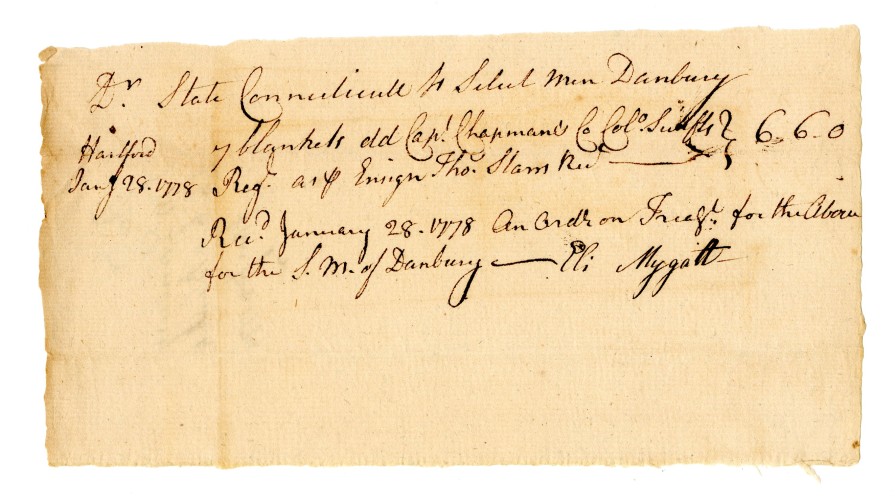 Dr State Connecticutt to Select men Danbury
Hartford
Jany 28. 1778
7 blankets dd Capt. Chapmans Co Colo. Swifts } 6..6..0
Regt. as ⅌ Ensign Tho. Starrs Rect
Recd. January 28. 1778 An Order on Treasr. for the Above
for the S. M. of Danbury — Eli Mygatt